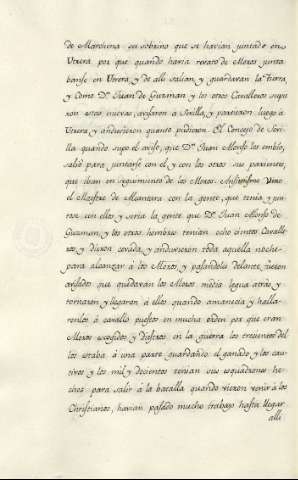 de Marchena su sobrino que se havian juntado en
Utrera, por que quando havia revato de Moros junta
banse en Utrera, y de alli salian, y guardavan la tierra
y como Dn. Juan de Guzman y los otros Cavalleros supie
ron estas nuevas, avisaron à Sevilla, y partieron luego à
Utrera y anduvieron quanto pudieron. El Concejo de Sevi
lla quando supo el aviso, que Dn. Juan Alonso les embió,
salió para juntarse con el, y con los otros sus parientes,
que iban en seguimiento de los Moros. Ansimismo Vino
el Maestre de Alcantara con la gente, que tenia, y jun
tose con ellos, y seria la gente que Dn. Juan Alonso de
Guzman, y los otros hombres tenian ocho cientos Cavalle
ros y dieron cevada, y anduvieron toda aquella noche
para alcanzar à los Moros, y pasandolos delante, fueron
avisados que quedavan los Moros media legua atrás, y
tornaron y llegaron à ellos quando amanecia, y halla
ronlos à cavallo puestos en mucha orden por que eran
Moros escogidos y diestros en la guerra los trecientos de
los estaba à una parte guardando el ganado, y los cau
tivos y los mil y docientos tenian sus esquadrones he
chos para salir à la batalla quando vieron venir à los
Christianos, havian pasado mucho trabajo hasta llegar
alli